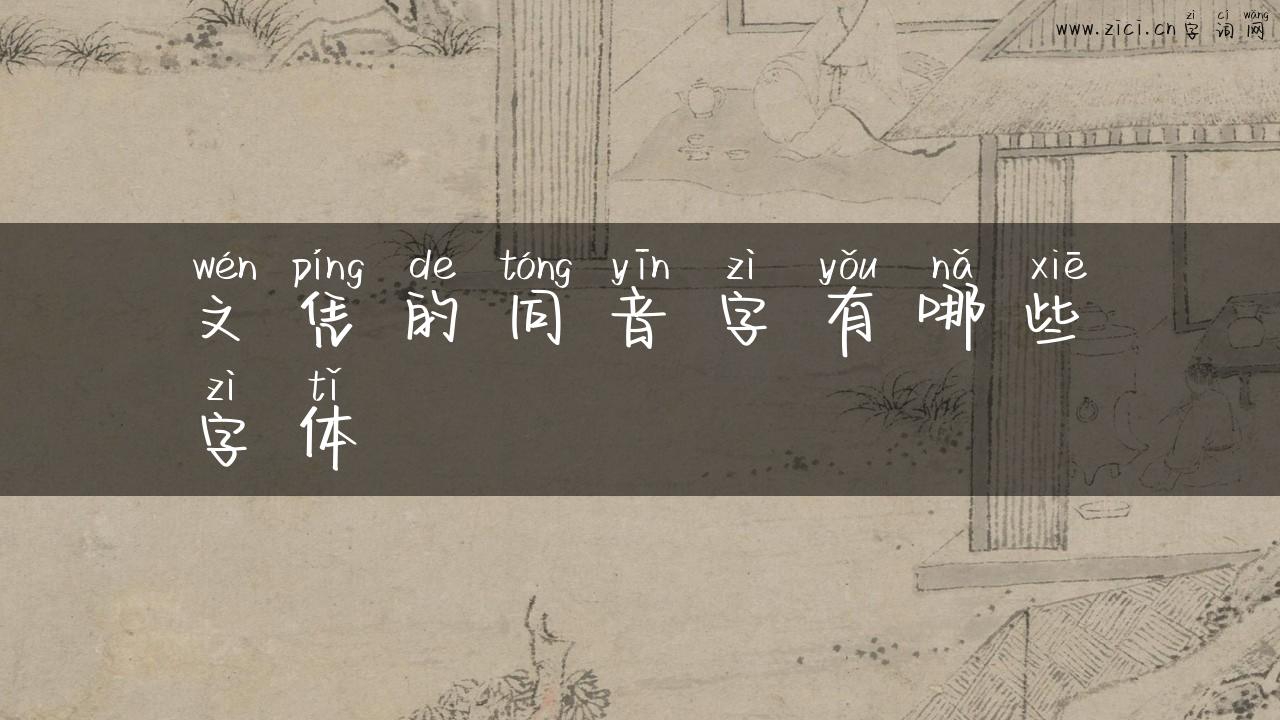 zì cí wǎng
www.zici.cn 字 词 网
wén píng de tóng yīn zì yǒu nǎ xiē
文 凭 的 同 音 字 有 哪 些
zì tǐ
字 体